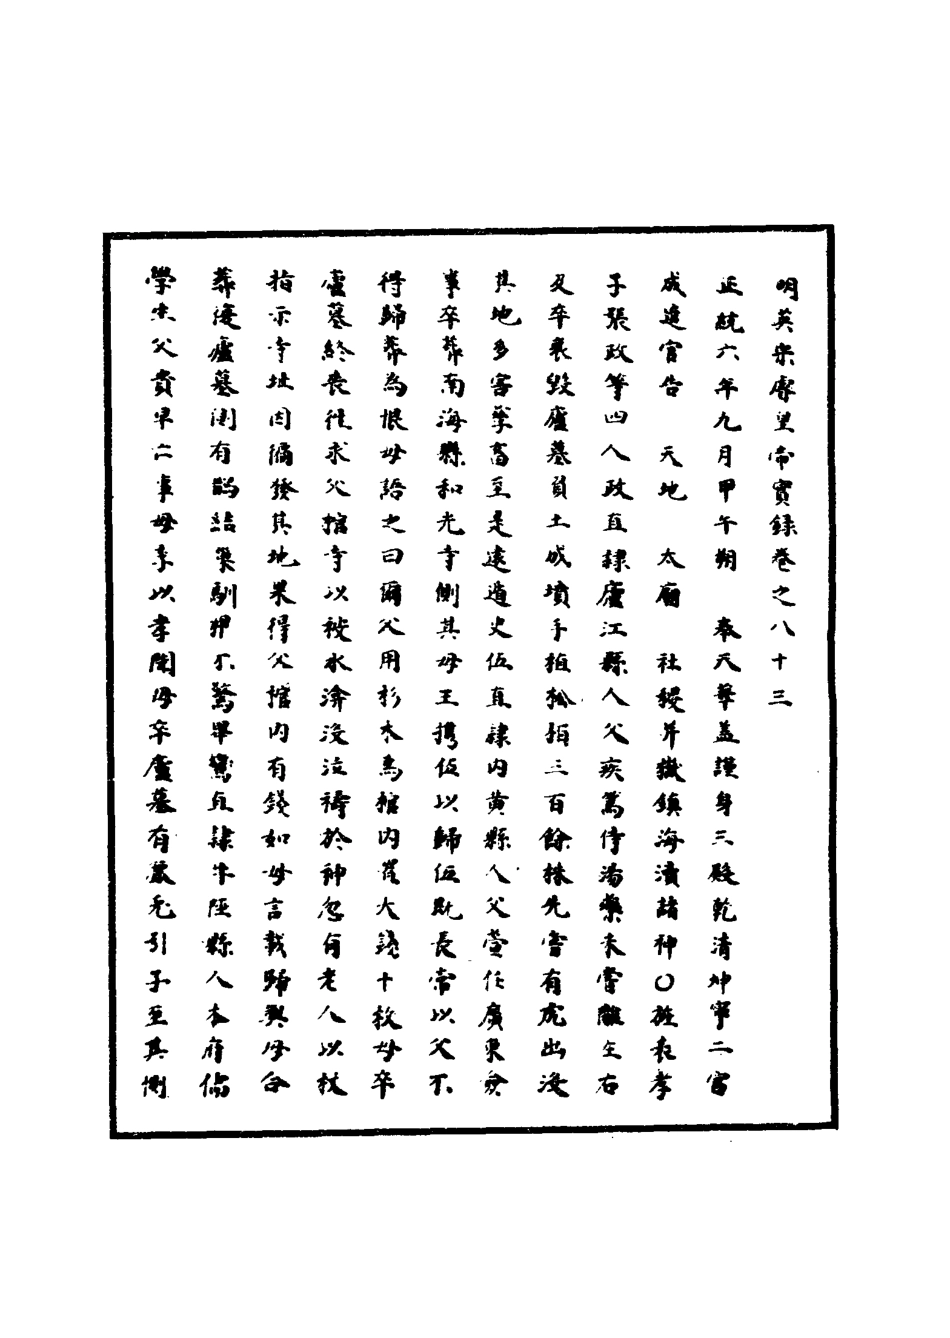 明英宗睿皇帝實錄卷之八十三
正統六年九月甲午朔　奉天華盖謹身三殿乾清坤寧二宮
成遣官告　天地　太廟　社稷并嶽鎮海瀆諸神○旌表孝
子張政等四人政直隸廬江縣人父疾篤侍湯藥未嘗離左右
及卒哀毀廬墓負土成墳手植松栢三百餘株先嘗有虎出沒
其地多害孳畜至是遠遁史伍直隸內黄縣人父萱任廣東僉
事卒葬南海縣和光寺側其母王携伍以歸伍既長常以父不
得歸葬為恨母語之曰爾父用杉木為棺內置大錢十枚母卒
廬墓終喪往求父棺寺以被水渰沒泣禱於神忽有老人以杖
指示寺址因徧發其地果得父棺內有錢如母言載歸與母合
葬復廬墓側有鵲結巢馴狎不驚畢鸞直隸井陘縣人本府儒
學生父貴早亡事母李以孝聞母卒廬墓有慈烏引子至其側